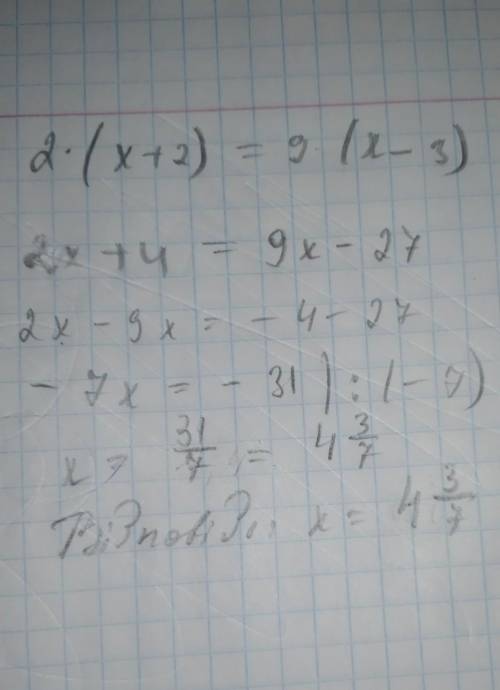 2·(x+2) = 9·(x-3)
2x+4 = 9x-27
2x-9x = -4-27
-7x = -31 | :(-7)
x = 31/7 = 4 3/7
Відповідь: x = 4 3/7